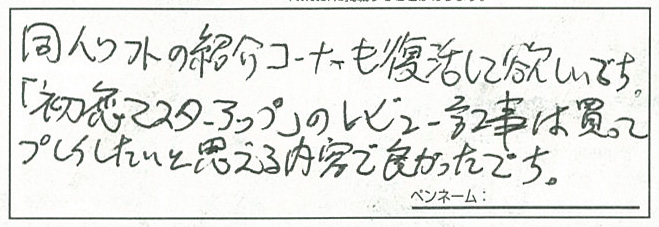 同人ソフトの紹介コーナーも復活して欲しいです。
「初恋マスターアップ」のレビュー記事は買って
プレイしたいと思える内容で良かったです。
ペンネーム：